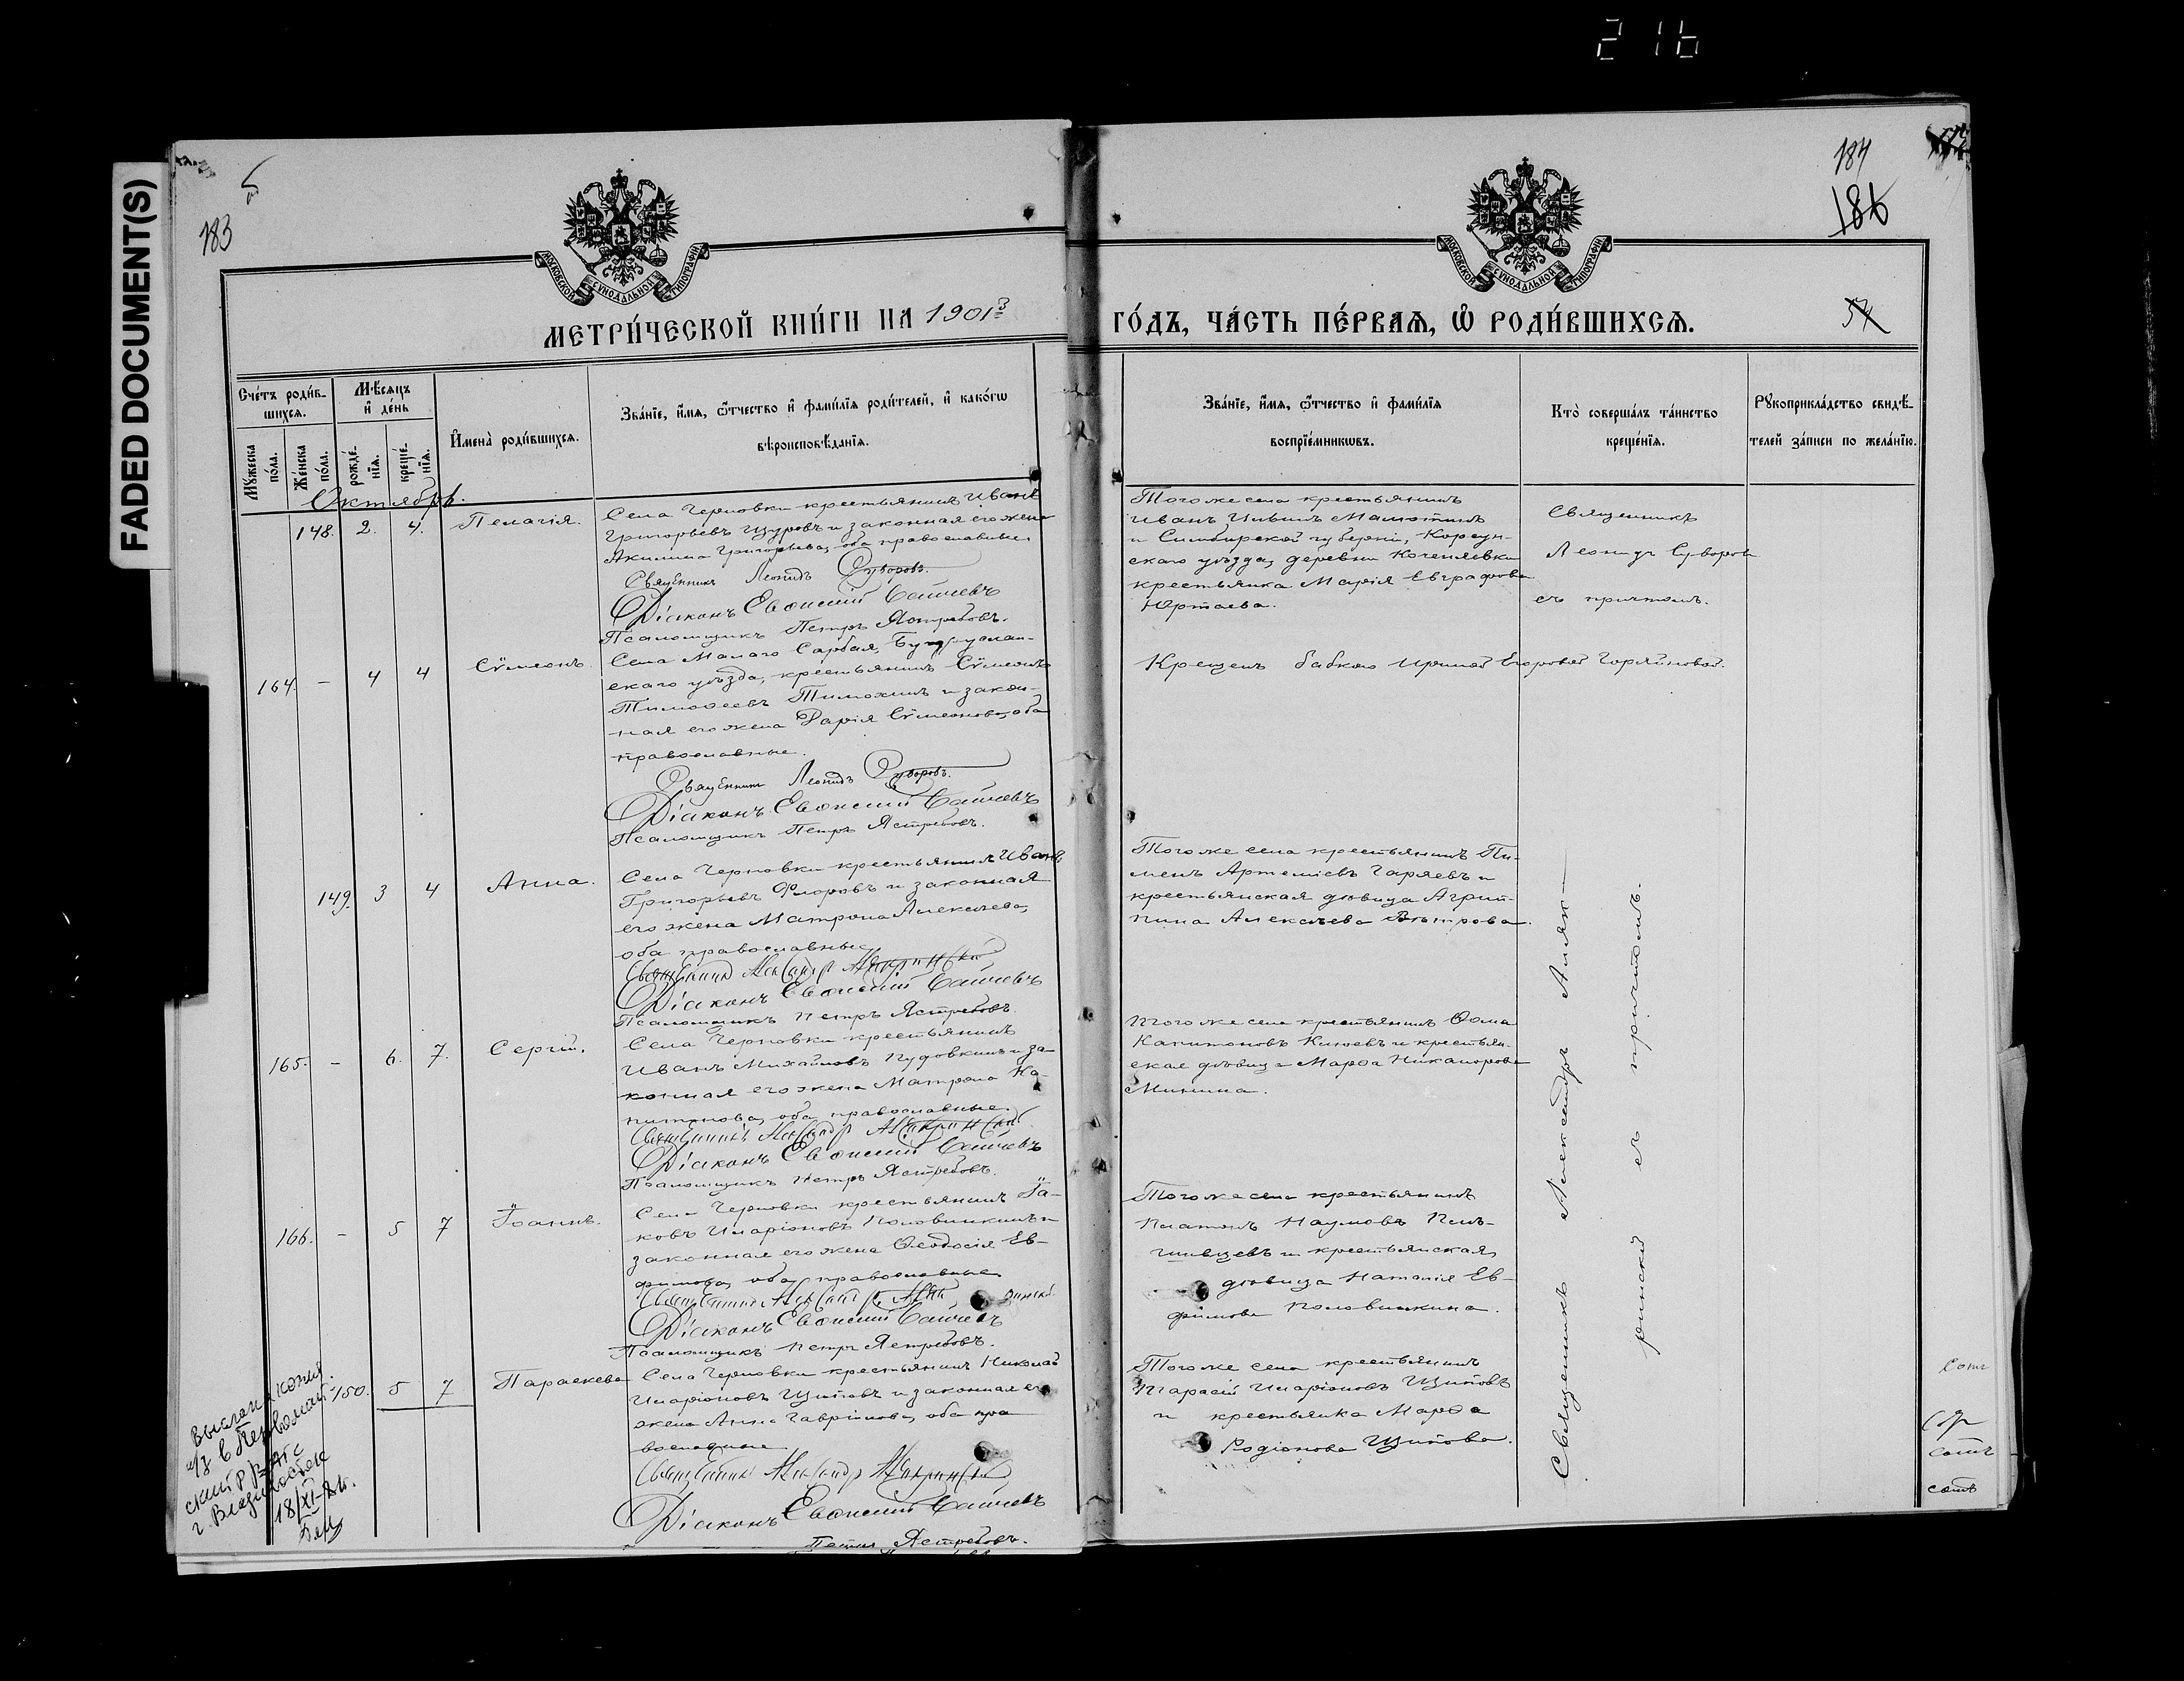 216
FADED DOCUMENT(S)
183
184
186
57
МОСКОВСКОЙ СУНОДАЛЬНОЙ ТИПОГРАФІИ
МОСКОВСКОЙ СУНОДАЛЬНОЙ ТИПОГРАФІИ
МЕТРИ́ЧЕСКОЙ КНИ́ГИ НА 1901й
ГО́ДЪ, ЧА́СТЬ ПЕ́РВАѦ, Ѽ РОДИ́ВШИХСѦ.
Сче́тъ роди́в-
шихсѧ.
Мѣ́сѧцъ
и҆ де́нь
Мꙋ́жеска
по́ла.
Же́нска
по́ла.
рожде́-
нїѧ.
креще́-
нїѧ.
И҆мена̀ роди́вшихсѧ.
Зва́нїе, и҆́мѧ, ѻ҆́тчество и҆ фами́лїѧ роди́телей, и҆ како́гѡ
вѣроисповѣ́данїѧ.
Зва́нїе, и҆́мѧ, ѻ҆́тчество и҆ фами́лїѧ
воспрїе́мникѡвъ.
Кто̀ соверша́лъ та́инство
креще́нїѧ.
Рꙋкоприкла́дство свидѣ́-
телей за́писи по жела́нїю.
Октябрь.
148. 2. 4. Пелагія.
Села Черновки крестьянинъ Иванъ
Григорьевъ Щуровъ и законная его жена
Акилина Григорьева, оба православные.
Священникъ Леонидъ Суворовъ.
Діаконъ Евѳимій Сайчевъ
Псаломщикъ Петръ Ястребовъ.
Тогоже села крестьянинъ
Иванъ
и Симбирской губерніи, Корсун-
скаго уѣзда, деревни Коченяевки
крестьянка Марія Евграфова
Юртаева.
Священникъ
Леонидъ Суворовъ
съ причтомъ.
164. - 4 4 Сѷмеонъ.
Села Малаго Сарбая, Бугуруслан-
скаго уѣзда, крестьянинъ Сѷмеонъ
Тимоѳеевъ Тимохинъ и закон-
ная его жена Дарія Сѷмеонова, оба
православные.
Священникъ Леонидъ Суворовъ.
Діаконъ Евѳимій Сайчевъ
Псаломщикъ Петръ Ястребовъ.
Крещенъ бабкою Ириной Егоровой Горяйновой.
149. 3 4 Анна.
Села Черновки крестьянинъ Иванъ
Григорьевъ Флоровъ и законная
его жена Матрона Алексѣева,
оба православные.
Священникъ Александръ
Діаконъ Евѳимій Сайчевъ
Псаломщикъ Петръ Ястребовъ.
Тогоже села крестьянинъ Пи-
менъ Артеміевъ Гаряевъ и
крестьянская дѣвица Агрип-
пина Алексѣева Вѣтрова.
165. - 6. 7. Сергій.
Села Черновки крестьянинъ
Иванъ Михайловъ Пудовкинъ и за-
конная его жена Матрона Ка-
питонова, оба православные.
Священникъ Александръ
Діаконъ Евѳимій Сайчевъ
Псаломщикъ Петръ Ястребовъ.
Тогоже села крестьянинъ Ѳома
Капитоновъ Клюевъ и крестьян-
ская дѣвица Марѳа Никанорова
Минина.
166. - 5 7 Іоаннъ.
Села Черновки крестьянинъ Іа-
ковъ Иларіоновъ Половинкинъ и
законная его жена Ѳеодосія Ев-
фимова, оба православные.
Священникъ Александръ
Діаконъ Евѳимій Сайчевъ
Псаломщикъ Петръ Ястребовъ.
Тогоже села крестьянинъ
Платонъ Наумовъ
и крестьянская
дѣвица Наталія Ев-
фимова Половинкина.
150. 5 7 Параскева
Села Черновки крестьянинъ Николай
Иларіоновъ Щиповъ и законная его
жена Анна Гавріилова, оба пра
вославные
Священникъ Александръ
Діаконъ Евѳимій Сайчевъ
Петръ Ястребовъ.
Тогоже села крестьянинъ
Тарасій Иларіоновъ Щиповъ
и крестьянка Марѳа
Родіонова Щипова.
Священникъ Александръ
ринскій съ причтомъ.
Выслана копия
в Первомай-
ский р. ЗАГС
г. Владивосток
18/XI-